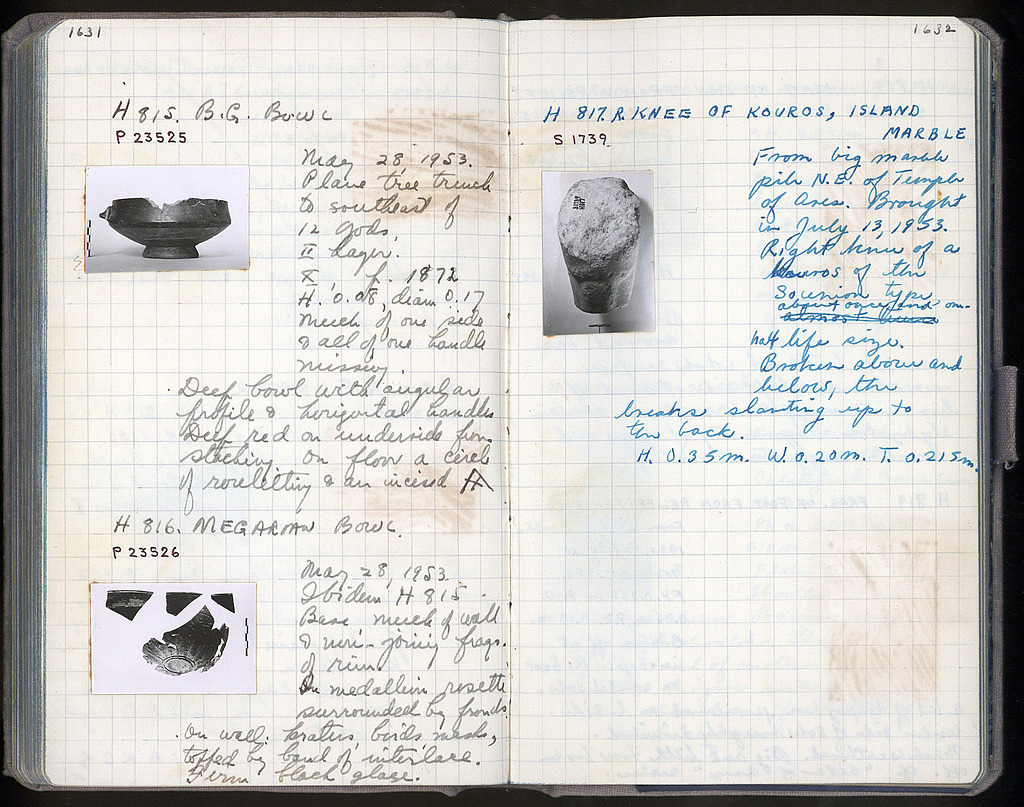 1631
H 815. B.G. BOWL
P 23525
May 28 1953.
Plane tree trench
to southeast of
12 Gods.
II Layer.
X, f. 1872
H. 0.08, diam 0.17
much of one side
& all of one handle
missing.
Deep bowl with angular
profile & horizontal handles
Deep red on underside from
stacking on floor a circle
of rouletting & an incised
H 816. MEGARIAN BOWL.
P 23526
May 28, 1953.
Ibidem H 815
Base much of wall
& non-joining frags.
of rim.
In medallion rosette
surrounded by fronds.
On wall: kraters, birds masks,
topped by band of interlace.
Firm black glaze.
1632
H 817. R. KNEE OF KOUROS, ISLAND
MARBLE
S 1739
From big marble
pile N.E. of Temple
of Ares. Brought
in July 13, 1953.
Right knee of a
Kouros of the
Sounion type
about once and one-
almost twice
half life size.
Broken above and
below, the
breaks slanting up to
the back.
H. 0.35m. W. 0.20m. T. 0.215m.